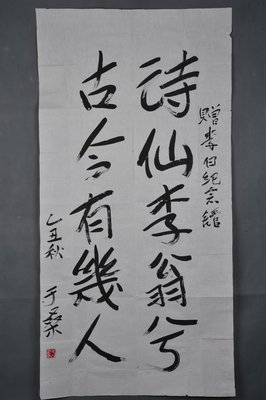 赠李白纪念馆
诗仙李翁兮
古今有幾人
乙丑秋
于桑